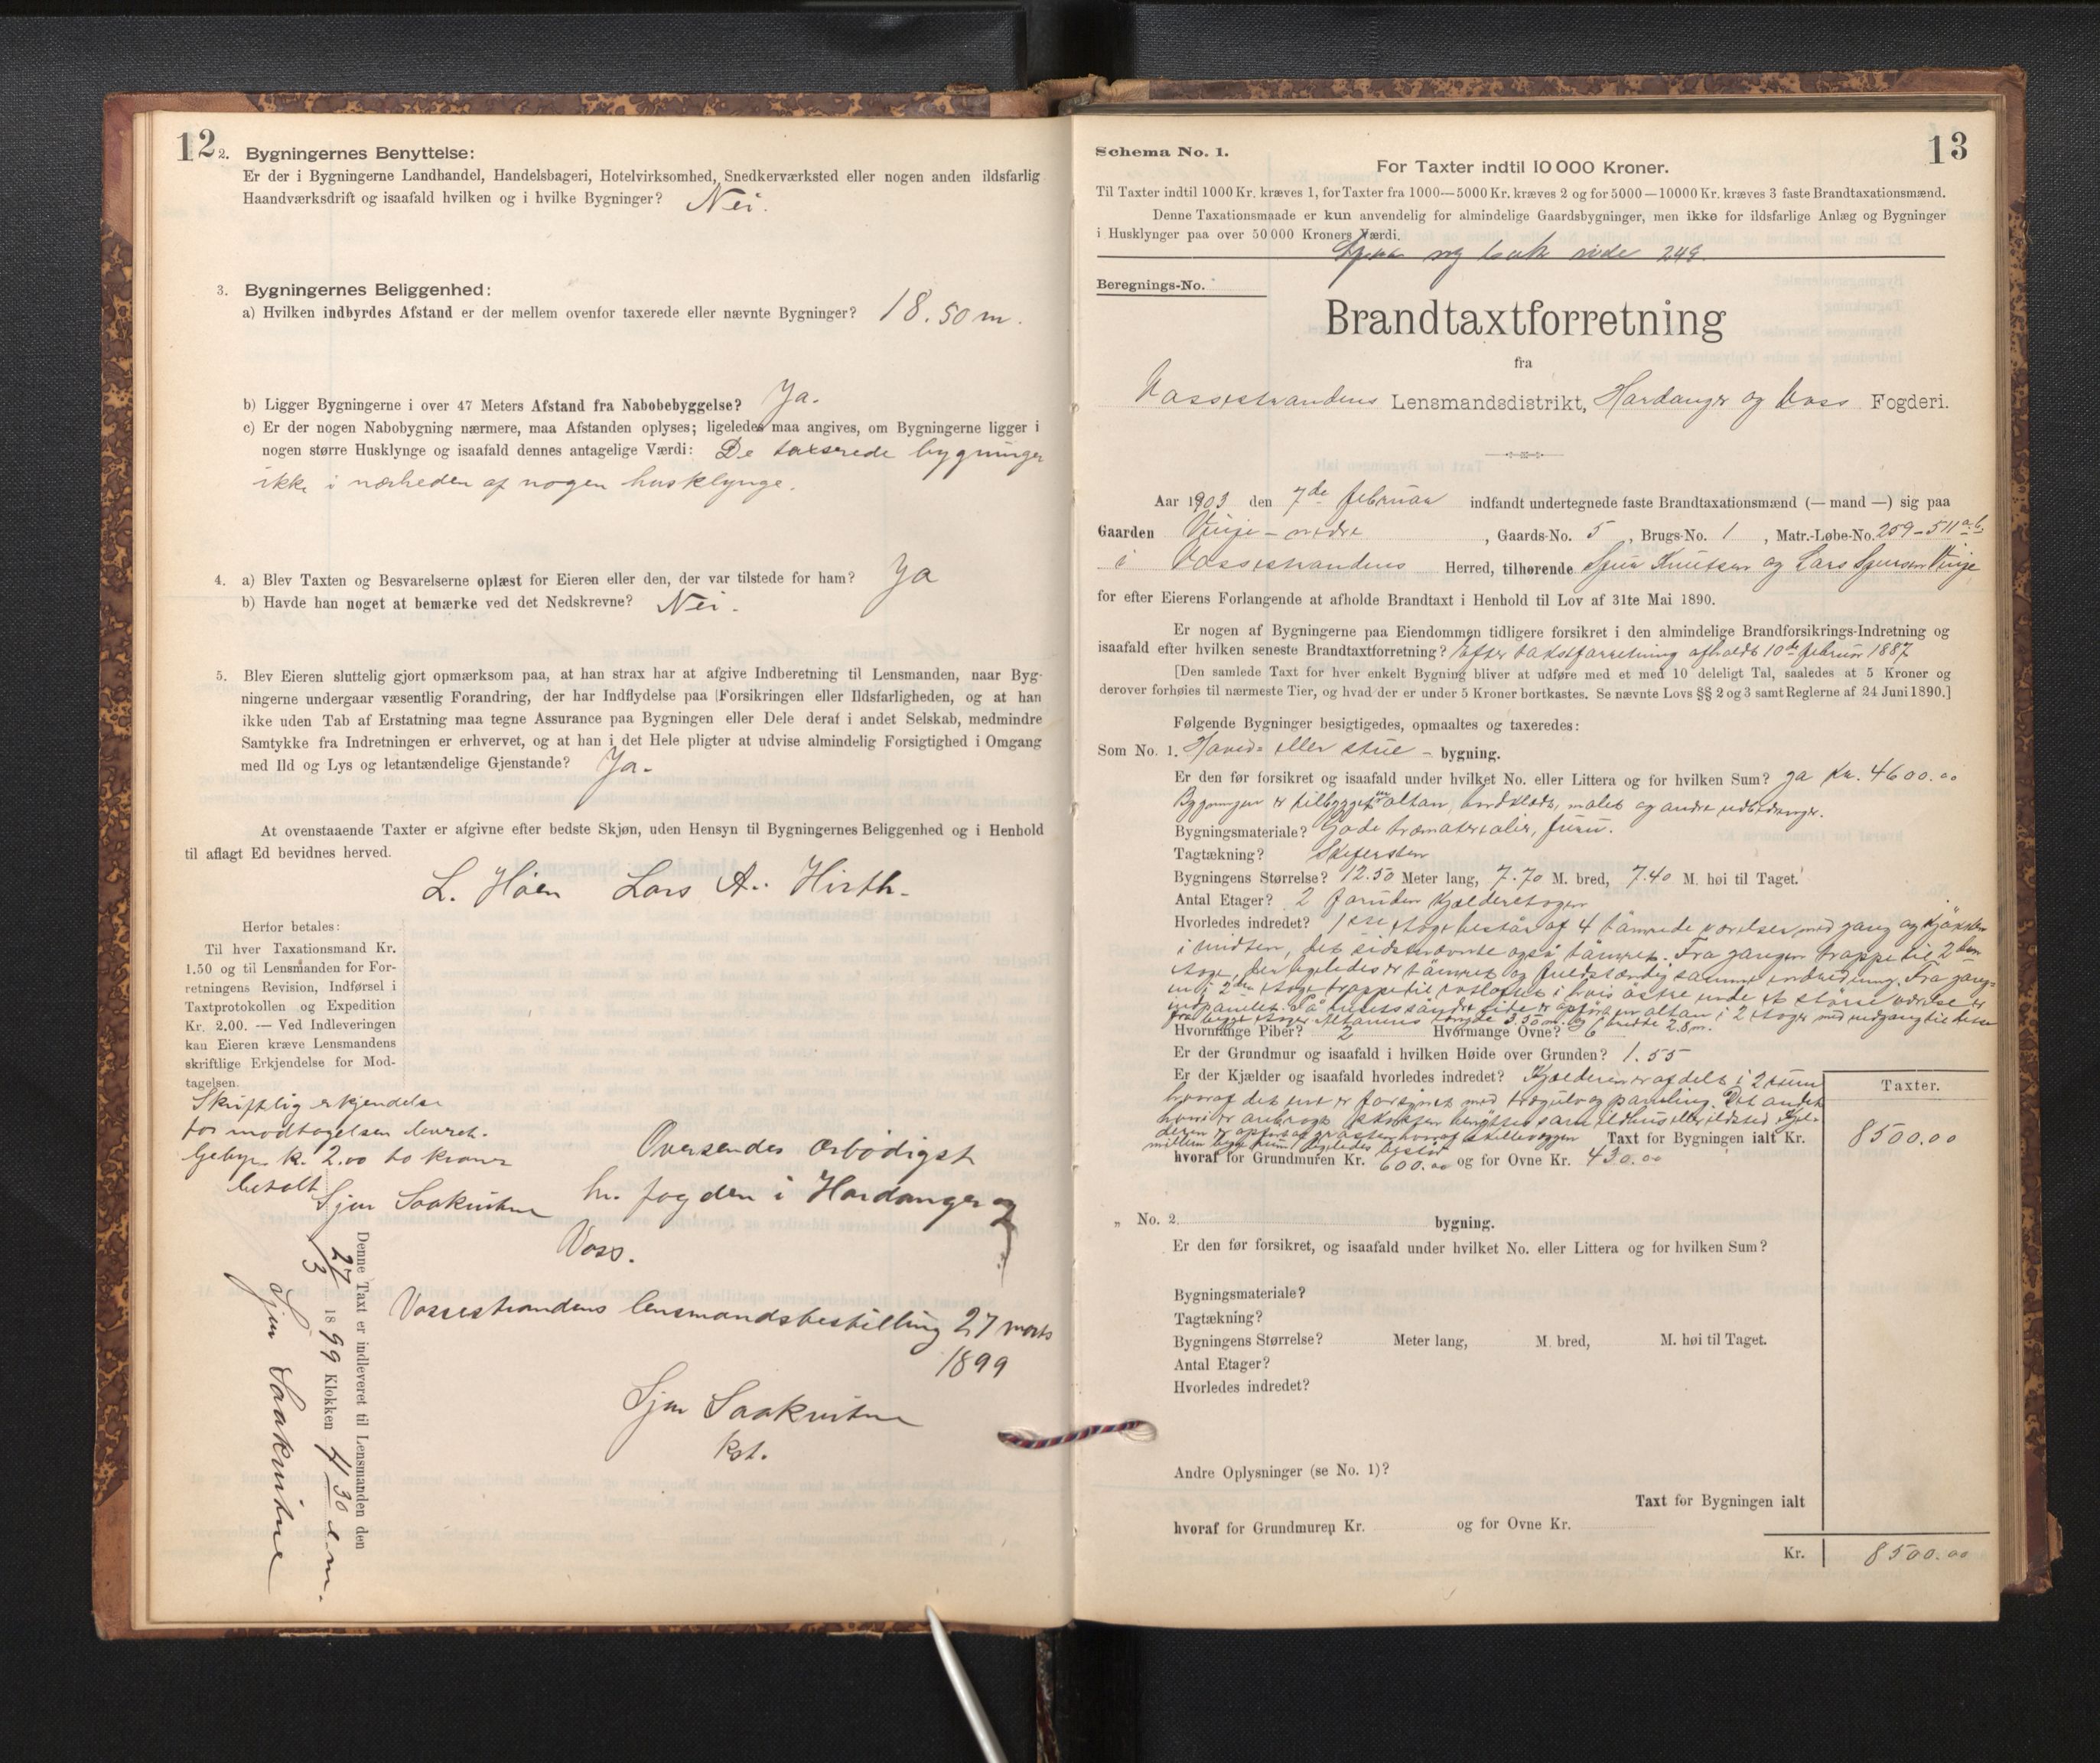 12
2. Bygningernes Benyttelse:
Er der i Bygningerne Landhandel, Handelsbageri, Hotelvirksomhed, Snedkerværksted eller nogen anden ildsfarlig
Haandværksdrift og isaafald hvilken og i hvilke Bygninger? Nei.
3. Bygningernes Beliggenhed:
a) Hvilken indbyrdes Afstand er der mellem ovenfor taxerede eller nævnte Bygninger? 18.50 m.
b) Ligger Bygningerne i over 47 Meters Afstand fra Nabobebyggelse? Ja.
c) Er der nogen Nabobygning nærmere, maa Afstanden oplyses; ligeledes maa angives, om Bygningerne ligger i
nogen større Husklynge og isaafald dennes antagelige Værdi: De taxerede bygninger
ikke i nærheden af nogen husklynge.
4. a) Blev Taxten og Besvarelserne oplæst for Eieren eller den, der var tilstede for ham? Ja
b) Havde han noget at bemærke ved det Nedskrevne? Nei.
5. Blev Eieren sluttelig gjort opmærksom paa, at han strax har at afgive Indberetning til Lensmanden, naar Byg-
ningerne undergaar væsentlig Forandring, der har Indflydelse paa Forsikringen eller Ildsfarligheden, og at han
ikke uden Tab af Erstatning maa tegne Assurance paa Bygningen eller Dele deraf i andet Selskab, medmindre
Samtykke fra Indretningen er erhvervet, og at han i det Hele pligter at udvise almindelig Forsigtighed i Omgang
med Ild og Lys og letantændelige Gjenstande? Ja.
At ovenstaaende Taxter er afgivne efter bedste Skjøn, uden Hensyn til Bygningernes Beliggenhed og i Henhold
til aflagt Ed bevidnes herved.
L. Höen Lars A. Hirth.
Herfor betales:
Til hver Taxationsmand Kr.
1.50 og til Lensmanden for For-
retningens Revision, Indførsel i
Taxtprotokollen og Expedition
Kr. 2,00. — Ved Indleveringen
kan Eieren kræve Lensmandens
skriftlige Erkjendelse for Mod-
tagelsen.
Skriftlig erkjendelse
for modtagelsen leveret.
Gebyr kr. 2.00 to kroner
betalt Sjur Saakvitne
Oversendes ærbödigst
hr. fogden i Hardanger og
Voss.
Vossestrandens lensmandsbestilling 27 marts
1899
Sjur Saakvitne
kst.
Denne Taxt er indleveret til Lensmanden den
27/3 1899 Klokken 4 30 e.m.
Sjur Saakvitne
13
Schema No. 1.
For Taxter indtil 10 000 Kroner.
Til Taxter indtil 1000 Kr. kræves 1, for Taxter fra 1000—5000 Kr. kræves 2 og for 5000—10000 Kr. kræves 3 faste Brandtaxationsmænd.
Denne Taxationsmaade er kun anvendelig for almindelige Gaardsbygninger, men ikke for ildsfarlige Anlæg og Bygninger
i Husklynger paa over 50 000 Kroners Værdi.
og bak side 249.
Beregnings-No.
Brandtaxtforretning
fra
Vossestrandens Lensmandsdistrikt, Hardanger og Voss Fogderi.
Aar 1903 den 7de februar indfandt undertegnede faste Brandtaxationsmænd (— mand —) sig paa
Gaarden Vinje - nedre, Gaards-No. 5, Brugs-No. 1, Matr.-Løbe-No. 259 - 511 a.b.
i Vossestrandens Herred, tilhørende Sjur Knutsen og Lars Sjursen Vinje
for efter Eierens Forlangende at afholde Brandtaxt i Henhold til Lov af 31te Mai 1890.
Er nogen af Bygningerne paa Eiendommen tidligere forsikret i den almindelige Brandforsikrings-Indretning og
isaafald efter hvilken seneste Brandtaxtforretning? efter taxtforretning afholdt 10de februar 1887
[Den samlede Taxt for hver enkelt Bygning bliver at udføre med et med 10 deleligt Tal, saaledes at 5 Kroner og
derover forhøies til nærmeste Tier, og hvad der er under 5 Kroner bortkastes. Se nævnte Lovs §§ 2 og 3 samt Reglerne af 24 Juni 1890.]
Følgende Bygninger besigtigedes, opmaaltes og taxeredes:
Som No. 1. Hoved- eller stue - bygning.
Er den før forsikret og isaafald under hvilket No. eller Littera og for hvilken Sum? ja Kr. 4600.00
Bygningen er tilbygget en altan, bordklædt, malet og andre udbedringer.
Bygningsmateriale? Gode træmaterialier, furu.
Tagtækning? Skifersten
Bygningens Størrelse? 12.50 Meter lang, 7.70 M. bred, 7.40 M. høi til Taget.
Antal Etager? 2 foruden Kjælderetagen
Hvorledes indredet? 1ste etage består af 4 tömrede værelser med gang og kjökken
i midten, det sidstnævnte også tömret. Fra gangen trappe til 2den
etage, der ligeledes er tömret og fuldstændig samme indredning. Fra gang-
en i 2den etage trappe til rotloftet i hvis östre ende et större værelse er
indpanelet. På husets söndre side er opfört en altan i 2 etager med udgang til denne
fra begge etager. Altanens længde 3.50 m. og bredde 2.8 m.
Hvormange Piber? 2 Hvormange Ovne? 6
Er der Grundmur og isaafald i hvilken Høide over Grunden? 1.55
Er der Kjælder og isaafald hvorledes indredet? Kjælderen er afdelt i 2 rum
hvoraf det ene er forsynet med trægulv og paneling. Det andet
hvori er anbragt skorsten benyttes som ildhus eller ildsted. Kjæl-
deren er opfört af gråsten hvoraf skillevæggen
mellem begge rum ligeledes består
Taxter.
Taxt for Bygningen ialt Kr. 8500.00
hvoraf for Grundmuren Kr. 600.00 og for Ovne Kr. 430.00
„ No. 2. bygning.
Er den før forsikret, og isaafald under hvilket No. eller Littera og for hvilken Sum?
Bygningsmateriale?
Tagtækning?
Bygningens Størrelse? Meter lang, M. bred, M. høi til Taget.
Antal Etager?
Hvorledes indredet?
Andre Oplysninger (se No. 1)?
Taxt for Bygningen ialt
hvoraf for Grundmuren Kr. og for Ovne Kr.
Kr. 8500.00